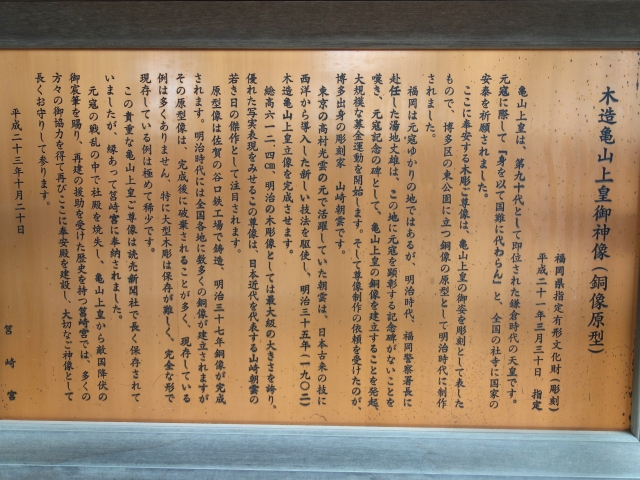 木造亀山上皇御神像（銅像原型）
福岡県指定有形文化財（彫刻）
平成二十一年三月三十日　指定
亀山上皇は、第九十代として即位された鎌倉時代の天皇です。
元寇に際して『身を以て国難に代わらん』と、全国の社寺に国家の
安泰を祈願されました。
ここに奉安する木彫ご尊像は、亀山上皇の御姿を彫刻として表した
もので、博多区の東公園に立つ銅像の原型として明治時代に制作
されました。
福岡は元寇ゆかりの地ではあるが、明治時代、福岡警察署長に
赴任した湯地丈雄は、この地に元寇を顕彰する記念碑がないことを
嘆き、元寇記念の碑として、亀山上皇の銅像を建立することを発起、
大規模な募金運動を開始します。そして尊像制作の依頼を受けたのが、
博多出身の彫刻家　山崎朝雲です。
東京の高村光雲の元で活躍していた朝雲は、日本古来の技に
西洋から導入した新しい技法を駆使し、明治三十五年（一九〇二）
木造亀山上皇立像を完成させます。
総高六一二．四㎝、明治の木彫像としては最大級の大きさを誇り、
優れた写実表現をみせるこの尊像は、日本近代を代表する山崎朝雲の
若き日の傑作として注目されます。
原型像は佐賀の谷口鉄工場で鋳造、明治三十七年銅像が完成
されます。明治時代には全国各地に数多くの銅像が建立されますが
その原型像は、完成後に破棄されることが多く、現存している
例は多くありません。特に大型木彫は保存が難しく、完全な形で
現存している例は極めて稀少です。
この貴重な亀山上皇ご尊像は読売新聞社で長く保存されて
いましたが、縁あって筥崎宮に奉納されました。
元寇の戦乱の中で社殿を焼失し、亀山上皇から敵国降伏の
御宸筆を賜り、再建の援助を受けた歴史を持つ筥崎宮では、多くの
方々の御協力を得て再びここに奉安殿を建設し、大切なご神像として
長くお守りして参ります。
平成二十三年十月二十日
筥崎宮